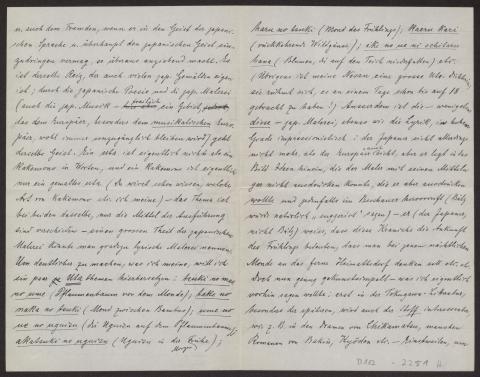 u. auch dem Fremden, wenn er in den Geist der japani-
schen Sprache u. überhaupt den japanischen Geist ein-
zudringen vermag, so überaus anziehend macht. Es
ist derselbe Reiz, der auch vielen jap. Gemälden eigen
ist; durch die japanische Poesie und die jap. Malerei
(auch die jap. Musik – freilich ein Gebiet
das dem Europäer, besonders dem musikalischen Euro-
päer, wohl immer unzugänglich bleiben wird) geht
derselbe Geist. Ein uta ist eigentlich nichts als ein
Kakemono in Worten, und ein Kakemono ist eigentlich
nur ein gemaltes uta. (Du wirst schon wissen, welche
Art von Kakemono etc. ich meine) – das Thema ist
bei beiden dasselbe, nur die Mittel der Ausführung
sind verschieden – einen grossen Theil der japanischen
Malerei könnte man geradezu lyrische Malerei nennen.
Um deutlicher zu machen, was ich meine, will ich
ein paar Uta themen hierhersetzen: tsuki no mae
no ume (Pflaumenbaum vor dem Monde), take no
naka no tsuki (Mond zwischen Bambus), ume no
ue no uguisu (die Uguisu auf dem Pflaumenbaum),
akatsuki no uguisu (Uguisu in der Frühe);
haru no tsuki (Mond des Frühlings); Kaeru kari
(rückkehrende Wildgänse); ike no ue ni chitaru
hana (Blumen, die auf den Teich niederfallen) etc.
(Übrigens ist meine Nesan eine grosse Uta-Dichterin,
sie rühmt sich, es an einem Tage schon bis auf 18
gebracht zu haben!) Ausserdem ist die – wenigstens
diese – jap. Malerei, ebenso wie die Lyrik, im hohen
Grade impressionistisch: der Japaner sieht allerdings
nicht mehr, als der Europäer auch sieht, aber er legt in das
Bild Ideen hinein, die der Maler mit seinen Mitteln
gar nicht ausdrücken konnte, die er aber ausdrücken
wollte und jedenfalls im Beschauer hervorruft (Bälz
würde natürlich „ungeniert" sagen) – er (der Japaner,
nicht Bälz) weiss, dass diese Kraniche die Ankunft
des Frühlings bedeuten, dass man bei jenem nächtlichen
Monde an das ferne Heimatsdorf denken soll etc. etc.
Doch nun genug was ich eigentlich
vorhin sagen wollte: erst in der Tokugawa-Literatur,
besonders der späteren, wird auch der Stoff interessanter,
wie z. B. in den Dramen von Chikamatsu, manchen
Romanen von Bakin, Kyōden etc. – Einstweilen, um
D 102 - 2251 H